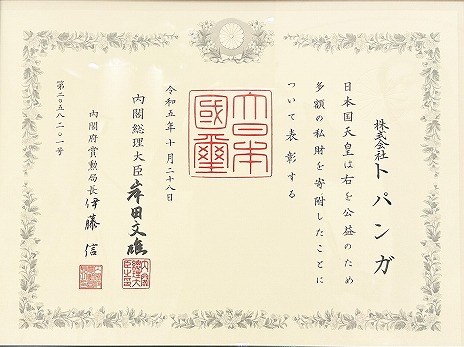 株式会社トパンガ
日本国天皇は右を公益のため
多額の私財を寄附したことに
ついて表彰する
大日本國璽
令和五年十月二十八日
内閣総理大臣 岸田文雄
内閣総理大臣之印
内閣府賞勲局長 伊藤 信
第二〇五八二〇一号